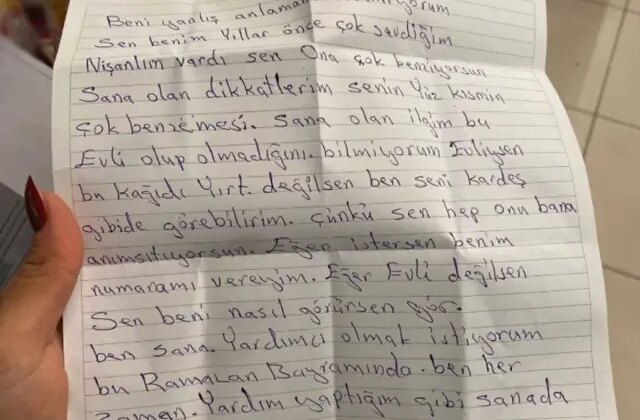 Beni yanlış anlama
Sen benim Yıllar önce çok sevdiğim
Nişanlım vardı sen Ona çok benziyorsun
Sana olan dikkatlerim senin Yüz kısmın
çok benzemesi. Sana olan ilgim bu
Evli olup olmadığını. bilmiyorum Evliysen
bu kağıdı Yırt. değilsen ben seni kardeş
gibide görebilirim. çünkü sen hep onu bana
anımsıtıyorsun. Eğer istersen benim
numaramı vereyim. Eğer Evli değilsen
Sen beni nasıl görürsen gör.
ben sana. Yardımcı olmak istiyorum
bu Ramazan Bayramında. ben her
zaman. Yardım yaptığım gibi sanada